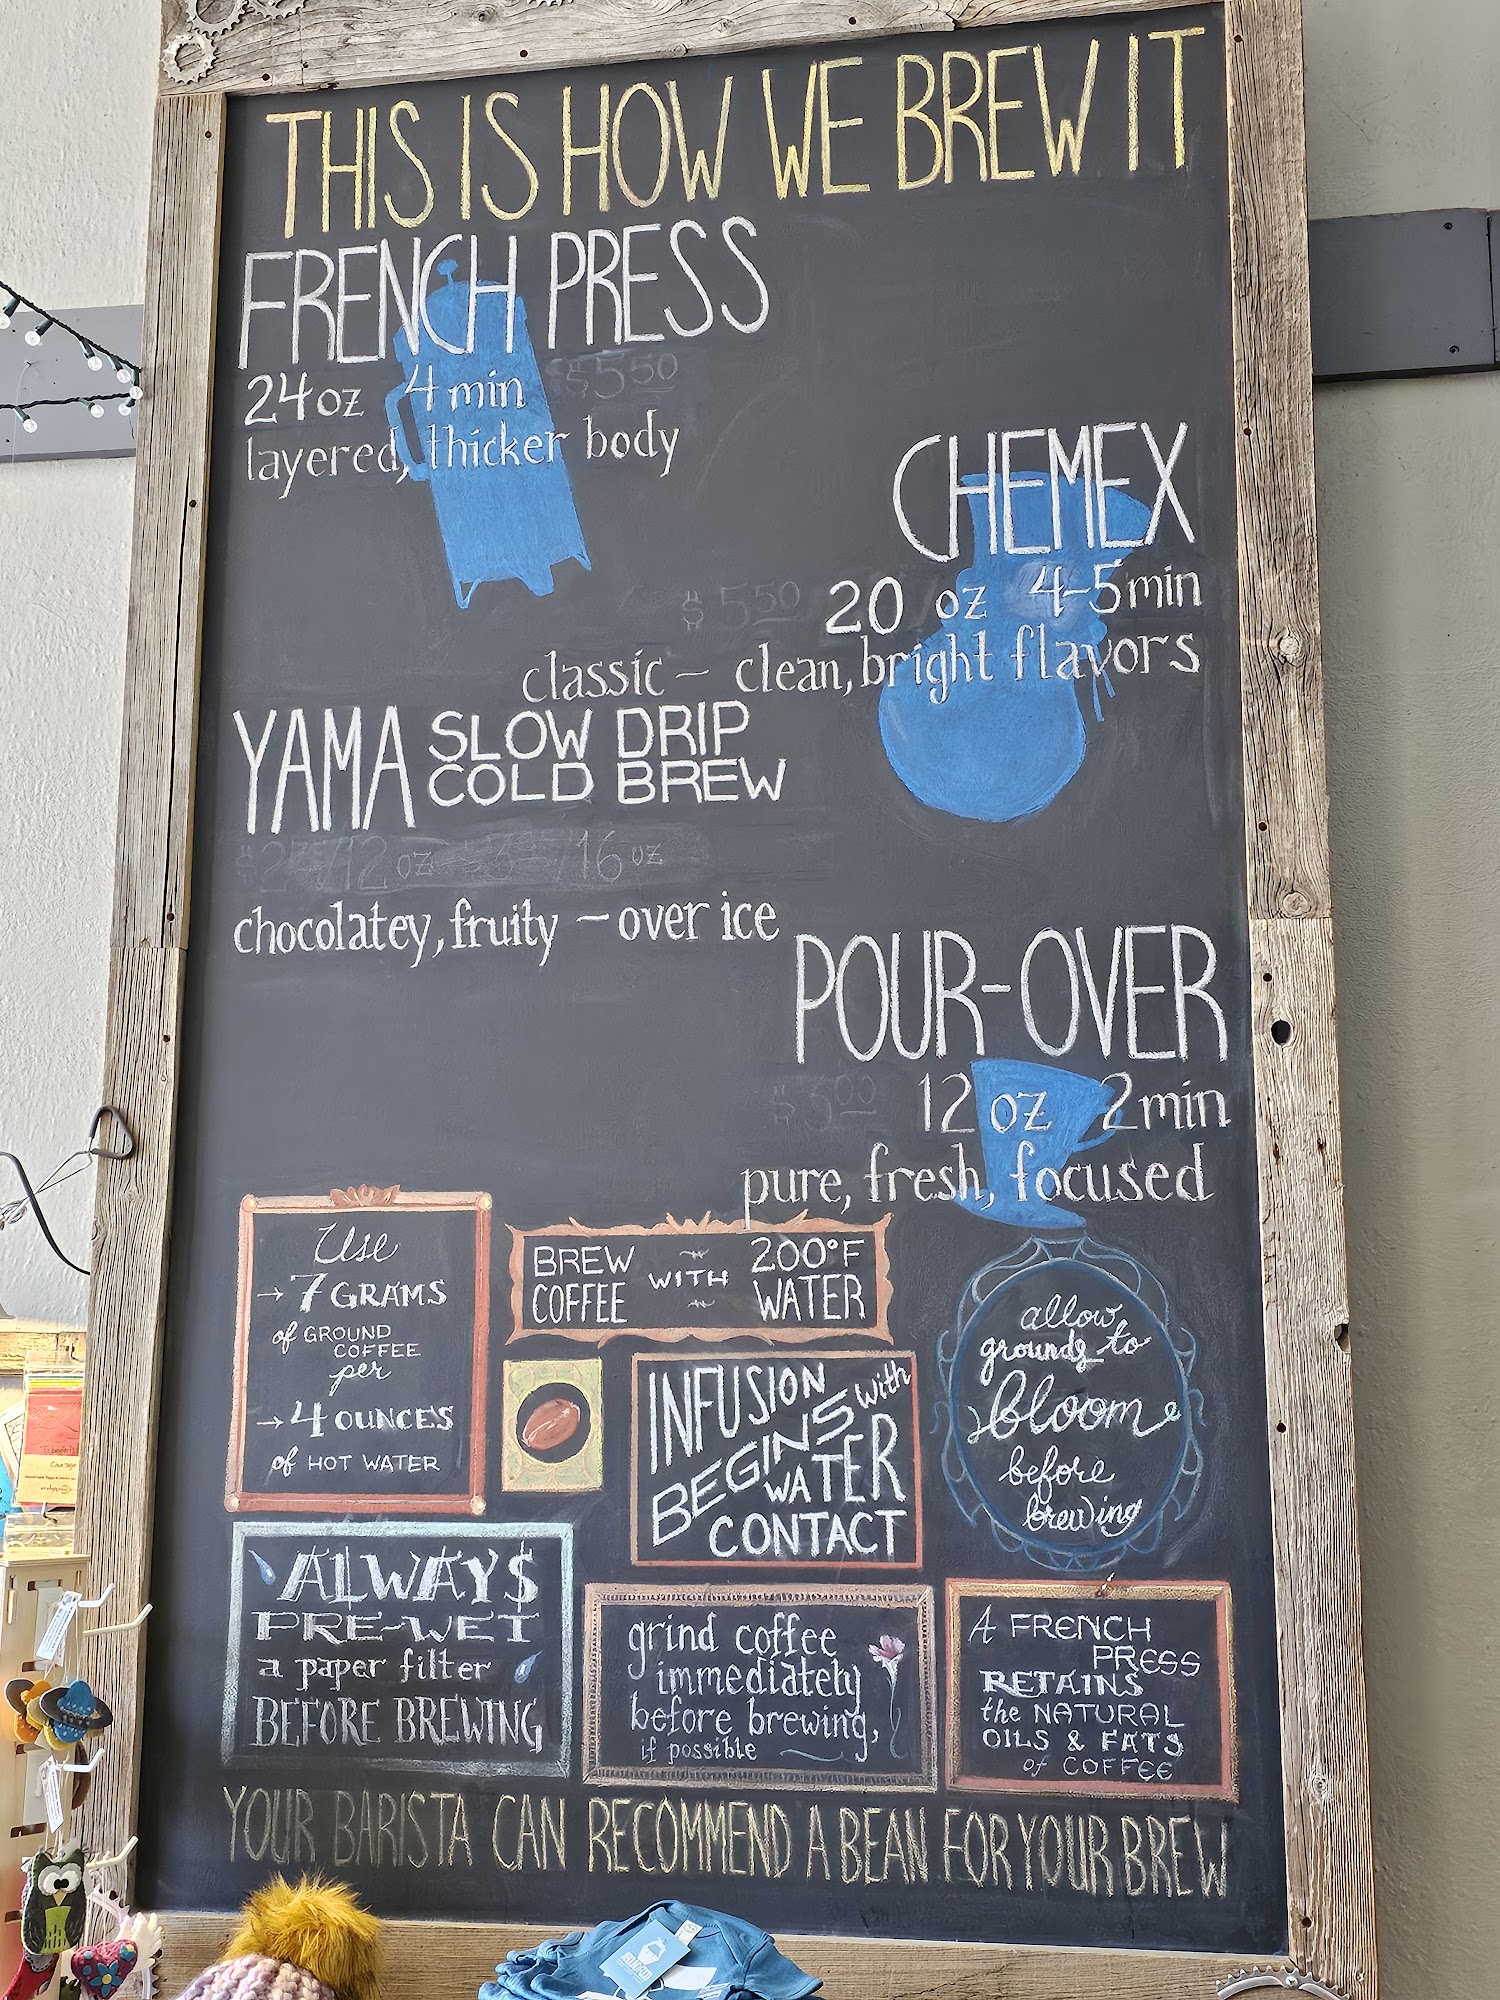 THIS IS HOW WE BREW IT
FRENCH PRESS
24oz 4min $5.50
layered, thicker body
CHEMEX
$5.50 20 oz 4-5min
classic - clean, bright flavors
YAMA SLOW DRIP
COLD BREW
12oz 16oz
chocolatey, fruity - over ice
POUR-OVER
$3.00 12 oz 2min
pure, fresh, focused
Use
→ 7 GRAMS
of GROUND
COFFEE
per
→ 4 OUNCES
of HOT WATER
BREW
COFFEE
WITH
200°F
WATER
allow
grounds to
bloom
before
brewing
INFUSION
BEGINS with
WATER
CONTACT
ALWAYS
PRE-WET
a paper filter
BEFORE BREWING
grind coffee
immediately
before brewing,
if possible
A FRENCH
PRESS
RETAINS
the NATURAL
OILS & FATS
of COFFEE
YOUR BARISTA CAN RECOMMEND A BEAN FOR YOUR BREW